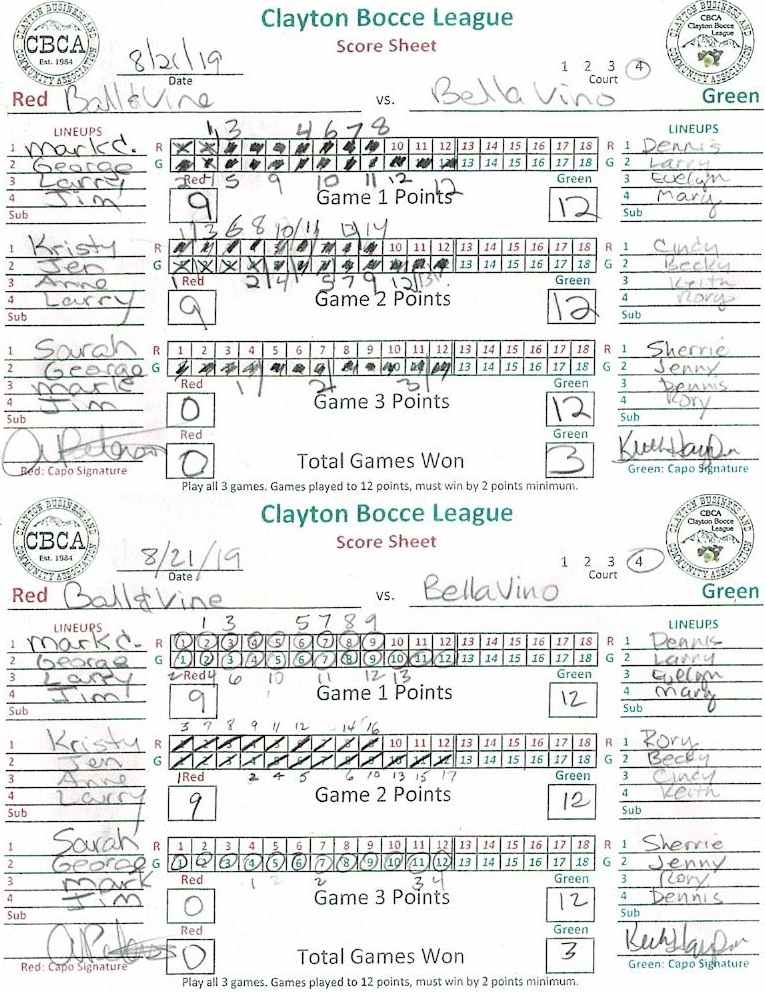 CLAYTON BUSINESS AND COMMUNITY ASSOCIATION
CBCA
Est. 1984
Clayton Bocce League
Score Sheet
CLAYTON BUSINESS AND COMMUNITY ASSOCIATION
CBCA
Clayton Bocce
League
8/21/19
Date
1 2 3 4
Court
Red Ball & Vine vs. Bella Vino Green
LINEUPS
1 Mark C.
2 George
3 Larry
4 Jim
Sub
1 3 4 6 7 8
R 10 11 12 13 14 15 16 17 18 R
G 13 14 15 16 17 18 G
Red
9
Game 1 Points
Green
12
LINEUPS
1 Dennis
2 Larry
3 Evelyn
4 Mary
Sub
1 Kristy
2 Jen
3 Anne
4 Larry
Sub
1 3 6 8 10 11 14
R 10 11 12 13 14 15 16 17 18 R
G 13 14 15 16 17 18 G
Red
9
Game 2 Points
Green
12
1 Cindy
2 Becky
3 Keith
4 Rory
Sub
1 Sarah
2 George
3 Mark
4 Jim
Sub
R 1 2 3 4 5 6 7 8 9 10 11 12 13 14 15 16 17 18 R
G 13 14 15 16 17 18 G
1 2 3
Red
0
Game 3 Points
Green
12
1 Sherrie
2 Jenny
3 Dennis
4 Rory
Sub
Red: Capo Signature
Red
0
Total Games Won
Green
3
Green: Capo Signature
Play all 3 games. Games played to 12 points, must win by 2 points minimum.
CLAYTON BUSINESS AND COMMUNITY ASSOCIATION
CBCA
Est. 1984
Clayton Bocce League
Score Sheet
CLAYTON BUSINESS AND COMMUNITY ASSOCIATION
CBCA
Clayton Bocce
League
8/21/19
Date
1 2 3 4
Court
Red Ball & Vine vs. Bella Vino Green
LINEUPS
1 Mark C.
2 George
3 Larry
4 Jim
Sub
1 3 5 7 8 9
R 1 2 3 4 5 6 7 8 9 10 11 12 13 14 15 16 17 18 R
G 1 2 3 4 5 6 7 8 9 10 11 12 13 14 15 16 17 18 G
2 4 6 10 11 12 13
Red
9
Game 1 Points
Green
12
LINEUPS
1 Dennis
2 Larry
3 Evelyn
4 Mary
Sub
1 Kristy
2 Jen
3 Anne
4 Larry
Sub
3 7 8 9 11 12 14 16
R 10 11 12 13 14 15 16 17 18 R
G 13 14 15 16 17 18 G
1 2 4 5 6 10 13 15 17
Red
9
Game 2 Points
Green
12
1 Rory
2 Becky
3 Cindy
4 Keith
Sub
1 Sarah
2 George
3 Mark
4 Jim
Sub
R 1 2 3 4 5 6 7 8 9 10 11 12 13 14 15 16 17 18 R
G 1 2 3 4 5 6 7 8 9 10 11 12 13 14 15 16 17 18 G
1 2 2 3 4
Red
0
Game 3 Points
Green
12
1 Sherrie
2 Jenny
3 Rory
4 Dennis
Sub
Red: Capo Signature
Red
0
Total Games Won
Green
3
Green: Capo Signature
Play all 3 games. Games played to 12 points, must win by 2 points minimum.